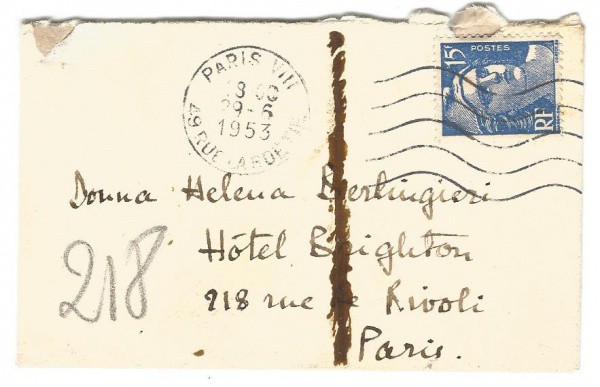 PARIS VIII
18 00
29-6
1953
49 RUE LA BOETIE
15F
POSTES
RF
Donna Helena Berlingieri
Hôtel Brighton
218 rue de Rivoli
Paris.
218